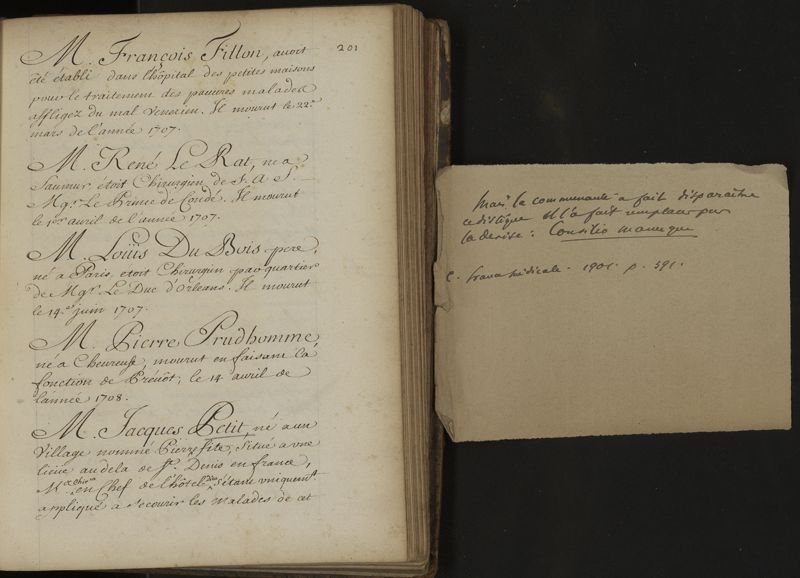 201
M. François Fillon, avoit
été établi dans l'hôpital des petites maisons
pour le traitement des pauvres malades
affligez du mal Venerien. Il mourut le 22.e
mars de l'année 1707.
M. René Le Rat, né a
Saumur, étoit Chirurgien de S. A. S.
Mgr. Le Prince de Condé. Il mourut
le 1er avril de l'année 1707.
M. Loüis Du Bois pere,
né a Paris, etoit Chirurgien par quartier
de Mgr. Le Duc d'Orleans. Il mourut
le 14.e juin 1707.
M. Pierre Prudhomme,
né a Cheureuse, mourut en faisant la
fonction de Prévôt; le 14 avril de
l'année 1708.
M. Jacques Petit, né a un
Village nommé Pierrefite, situé a une
lieüe audela de St. Denis en france,
Me. Chir.en en Chef de l'hôtel Dieu s'étant uniquemt.
appliqué a secourir les Malades de cet
Mais la communauté a fait disparaître
ce distique et l'a fait remplacer par
la devise : Consilio manuque
C. france médicale - 1901 - p. 391.